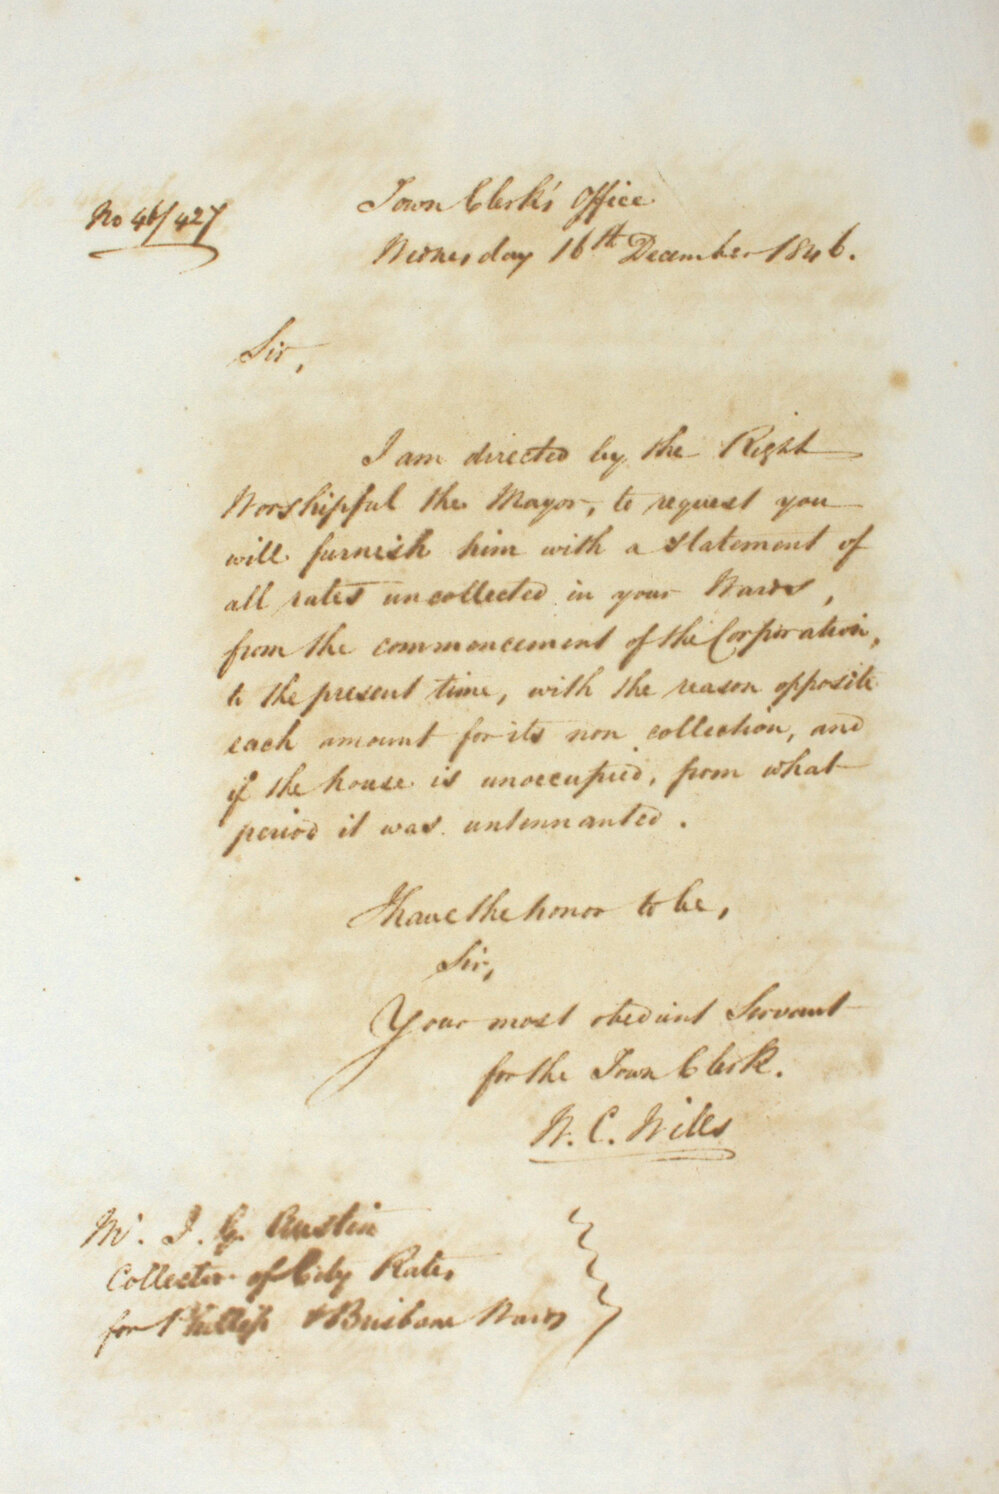 No 46/427
Town Clerk's Office
Wednesday 16th December 1846.
Sir,
I am directed by the Right
Worshipful the Mayor, to request you
will furnish him with a statement of
all rates uncollected in your Wards,
from the commencement of the Corporation,
to the present time, with the reason opposite
each amount for its non collection, and
if the house is unoccupied, from what
period it was untennanted.
I have the honor to be,
Sir,
Your most obedient Servant
for the Town Clerk.
W. C. Wills
Mr. J. G. Austin
Collector of City Rates
for Phillip & Brisbane Wards